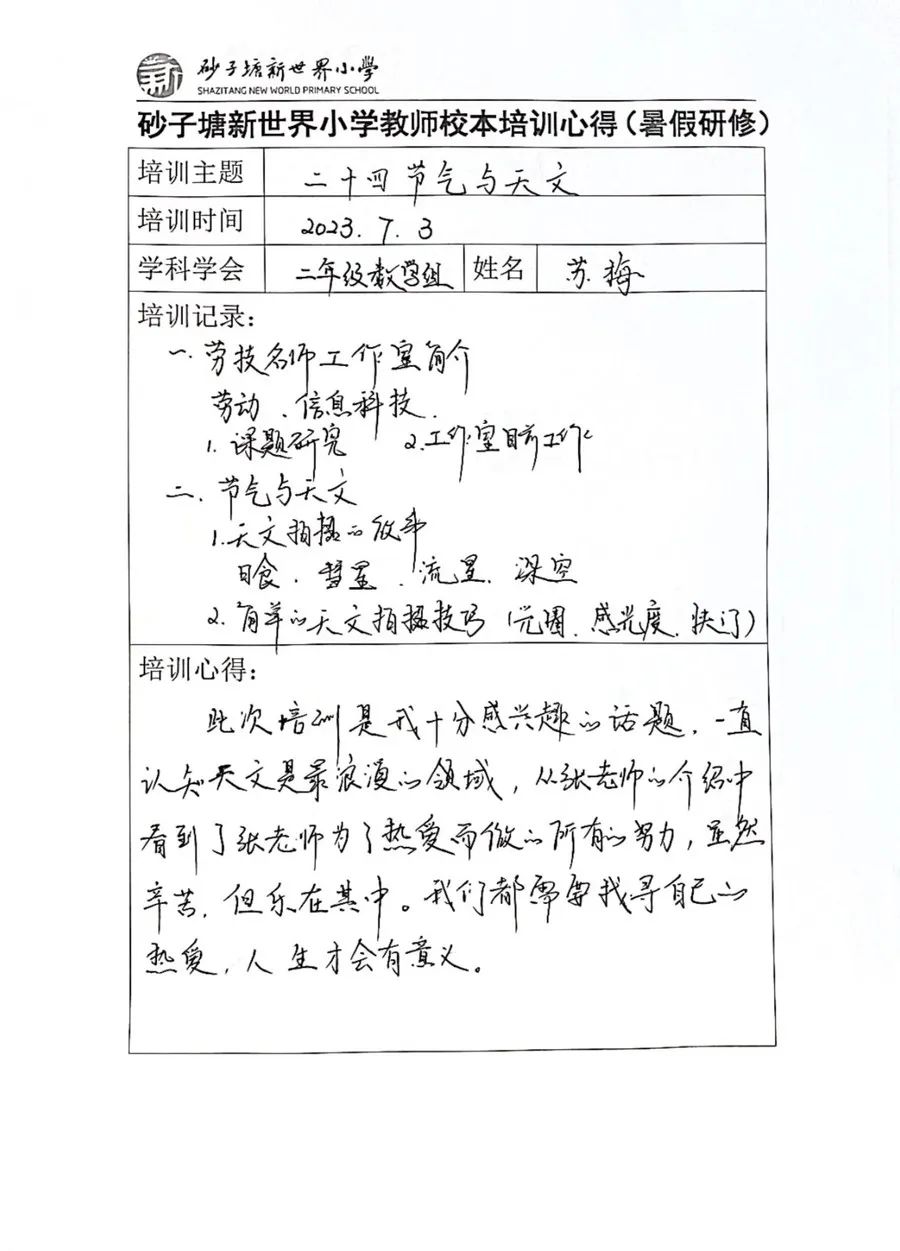 砂子塘新世界小學
SHAZITANG NEW WORLD PRIMARY SCHOOL
砂子塘新世界小学教师校本培训心得(暑假研修)
培训主题 二十四节气与天文
培训时间 2023.7.3
学科学会 二年级数学组 姓名 苏梅
培训记录:
一.劳技名师工作室简介
劳动、信息科技.
1.课题研究 2.工作室目前工作
二.节气与天文
1.天文拍摄的故事
日食、彗星、流星、深空
2.简单的天文拍摄技巧(光圈、感光度、快门)
培训心得:
此次培训是我十分感兴趣的话题,一直
认知天文是最浪漫的领域,从张老师的介绍中
看到了张老师为了热爱而做的所有的努力,虽然
辛苦,但乐在其中。我们都需要找寻自己的
热爱,人生才会有意义。